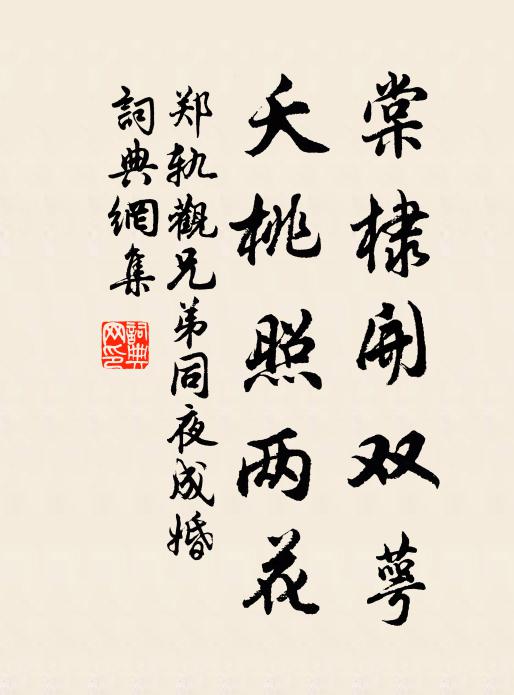 棠棣開双萼
夭桃照两花
郑軌觀兄弟同夜成婚
詞典網集
詞典
网印